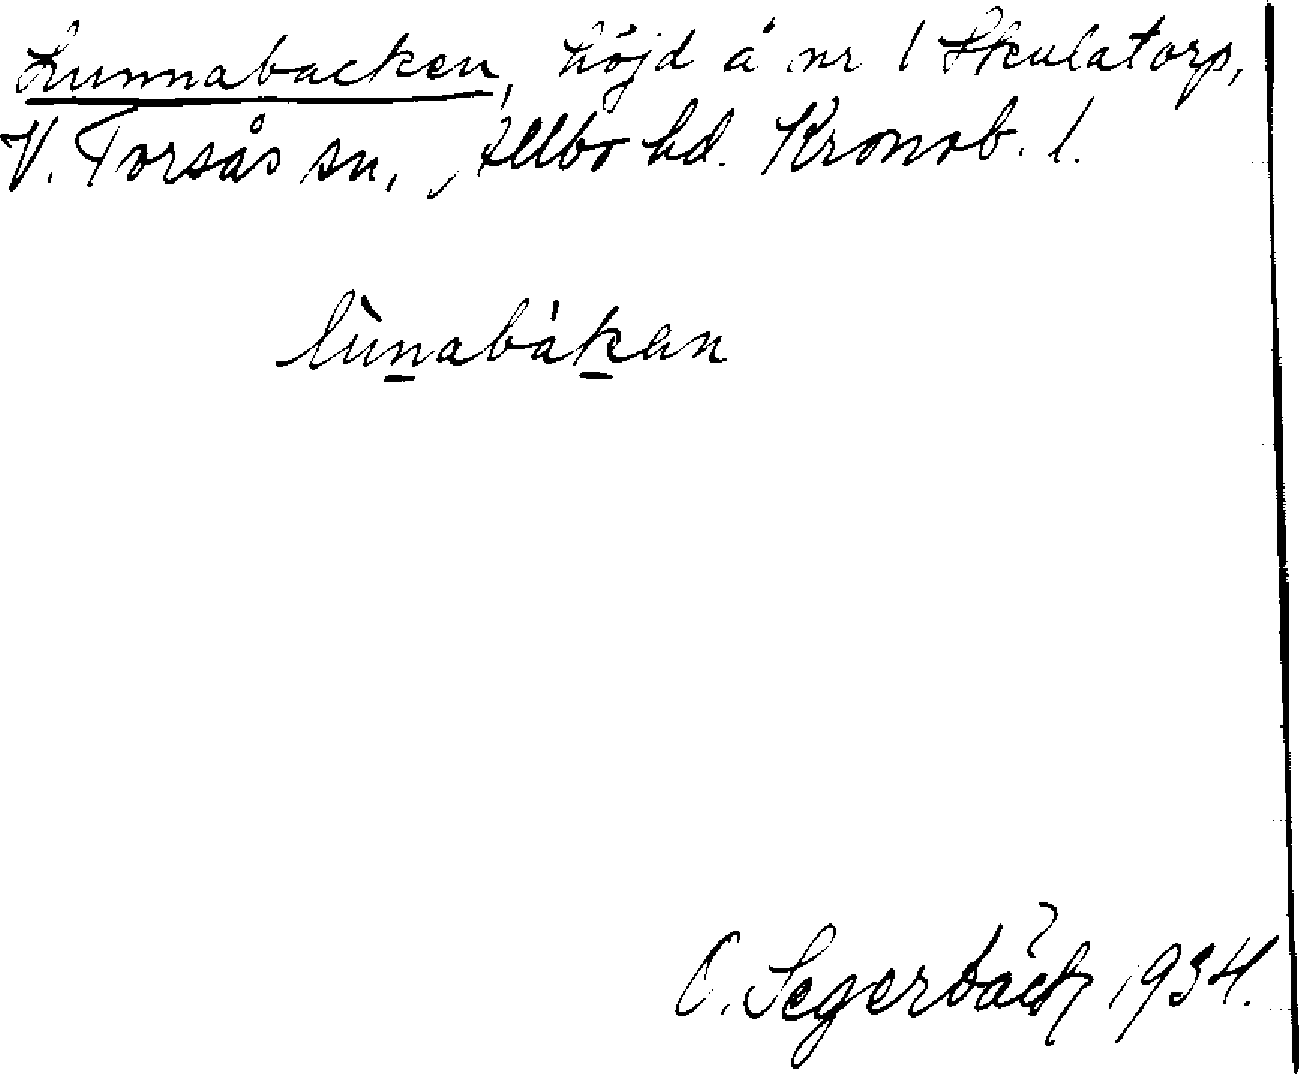 Lunnabacken, höjd å nr 1 Skulatorp,
V. Torsås sn, Allbo hd. Kronob. l.
lùnabákan
C. Segerbäck 1934.